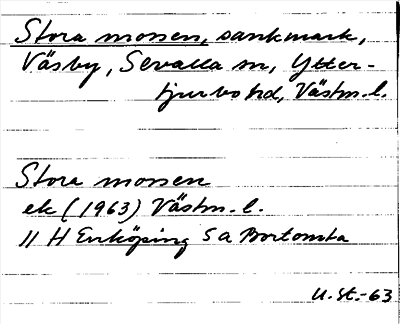 Stora mossen, sankmark,
Väsby, Sevalla sn, Ytter-
tjurbo hd, Västm. l.
Stora mossen
ek (1963) Västm. l.
11 H Enköping 5 a Bortomta
U. St. -63